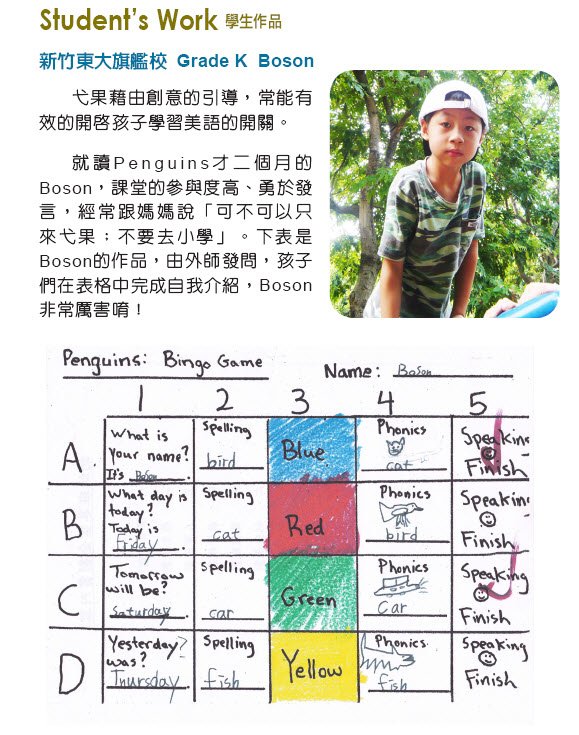 Student's Work 學生作品
新竹東大旗艦校 Grade K Boson
弋果藉由創意的引導，常能有
效的開啓孩子學習美語的開關。
就讀Penguins才二個月的
Boson，課堂的參與度高、勇於發
言，經常跟媽媽說「可不可以只
來弋果；不要去小學」。下表是
Boson的作品，由外師發問，孩子
們在表格中完成自我介紹，Boson
非常厲害唷！
Penguins: Bingo Game Name: Boson
1 2 3 4 5
A. What is your name? It's Boson. Spelling bird Blue Phonics cat Speaking Finish
B What day is today? Today is Friday. Spelling cat Red Phonics bird Speakin Finish
C Tomorrow will be? Saturday. Spelling car Green Phonics Car Speaking Finish
D Yesterday was? Thursday Spelling fish Yellow Phonics fish Speaking Finish